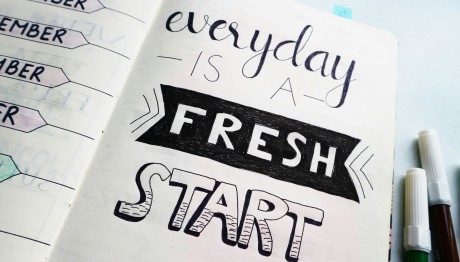 EMBER
EMBER
MBER
ER
everyday
IS A
FRESH
START